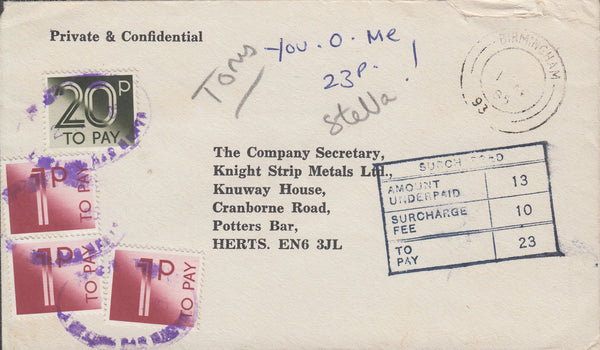 Private & Confidential
Tons
you. O. Me
23p. !
Stella
BIRMINGHAM
93
20P
TO PAY
1P
TO PAY
1P
TO PAY
1P
TO PAY
The Company Secretary,
Knight Strip Metals Ltd.,
Knuway House,
Cranborne Road,
Potters Bar,
HERTS. EN6 3JL
AMOUNT UNDERPAID 13
SURCHARGE FEE 10
TO PAY 23